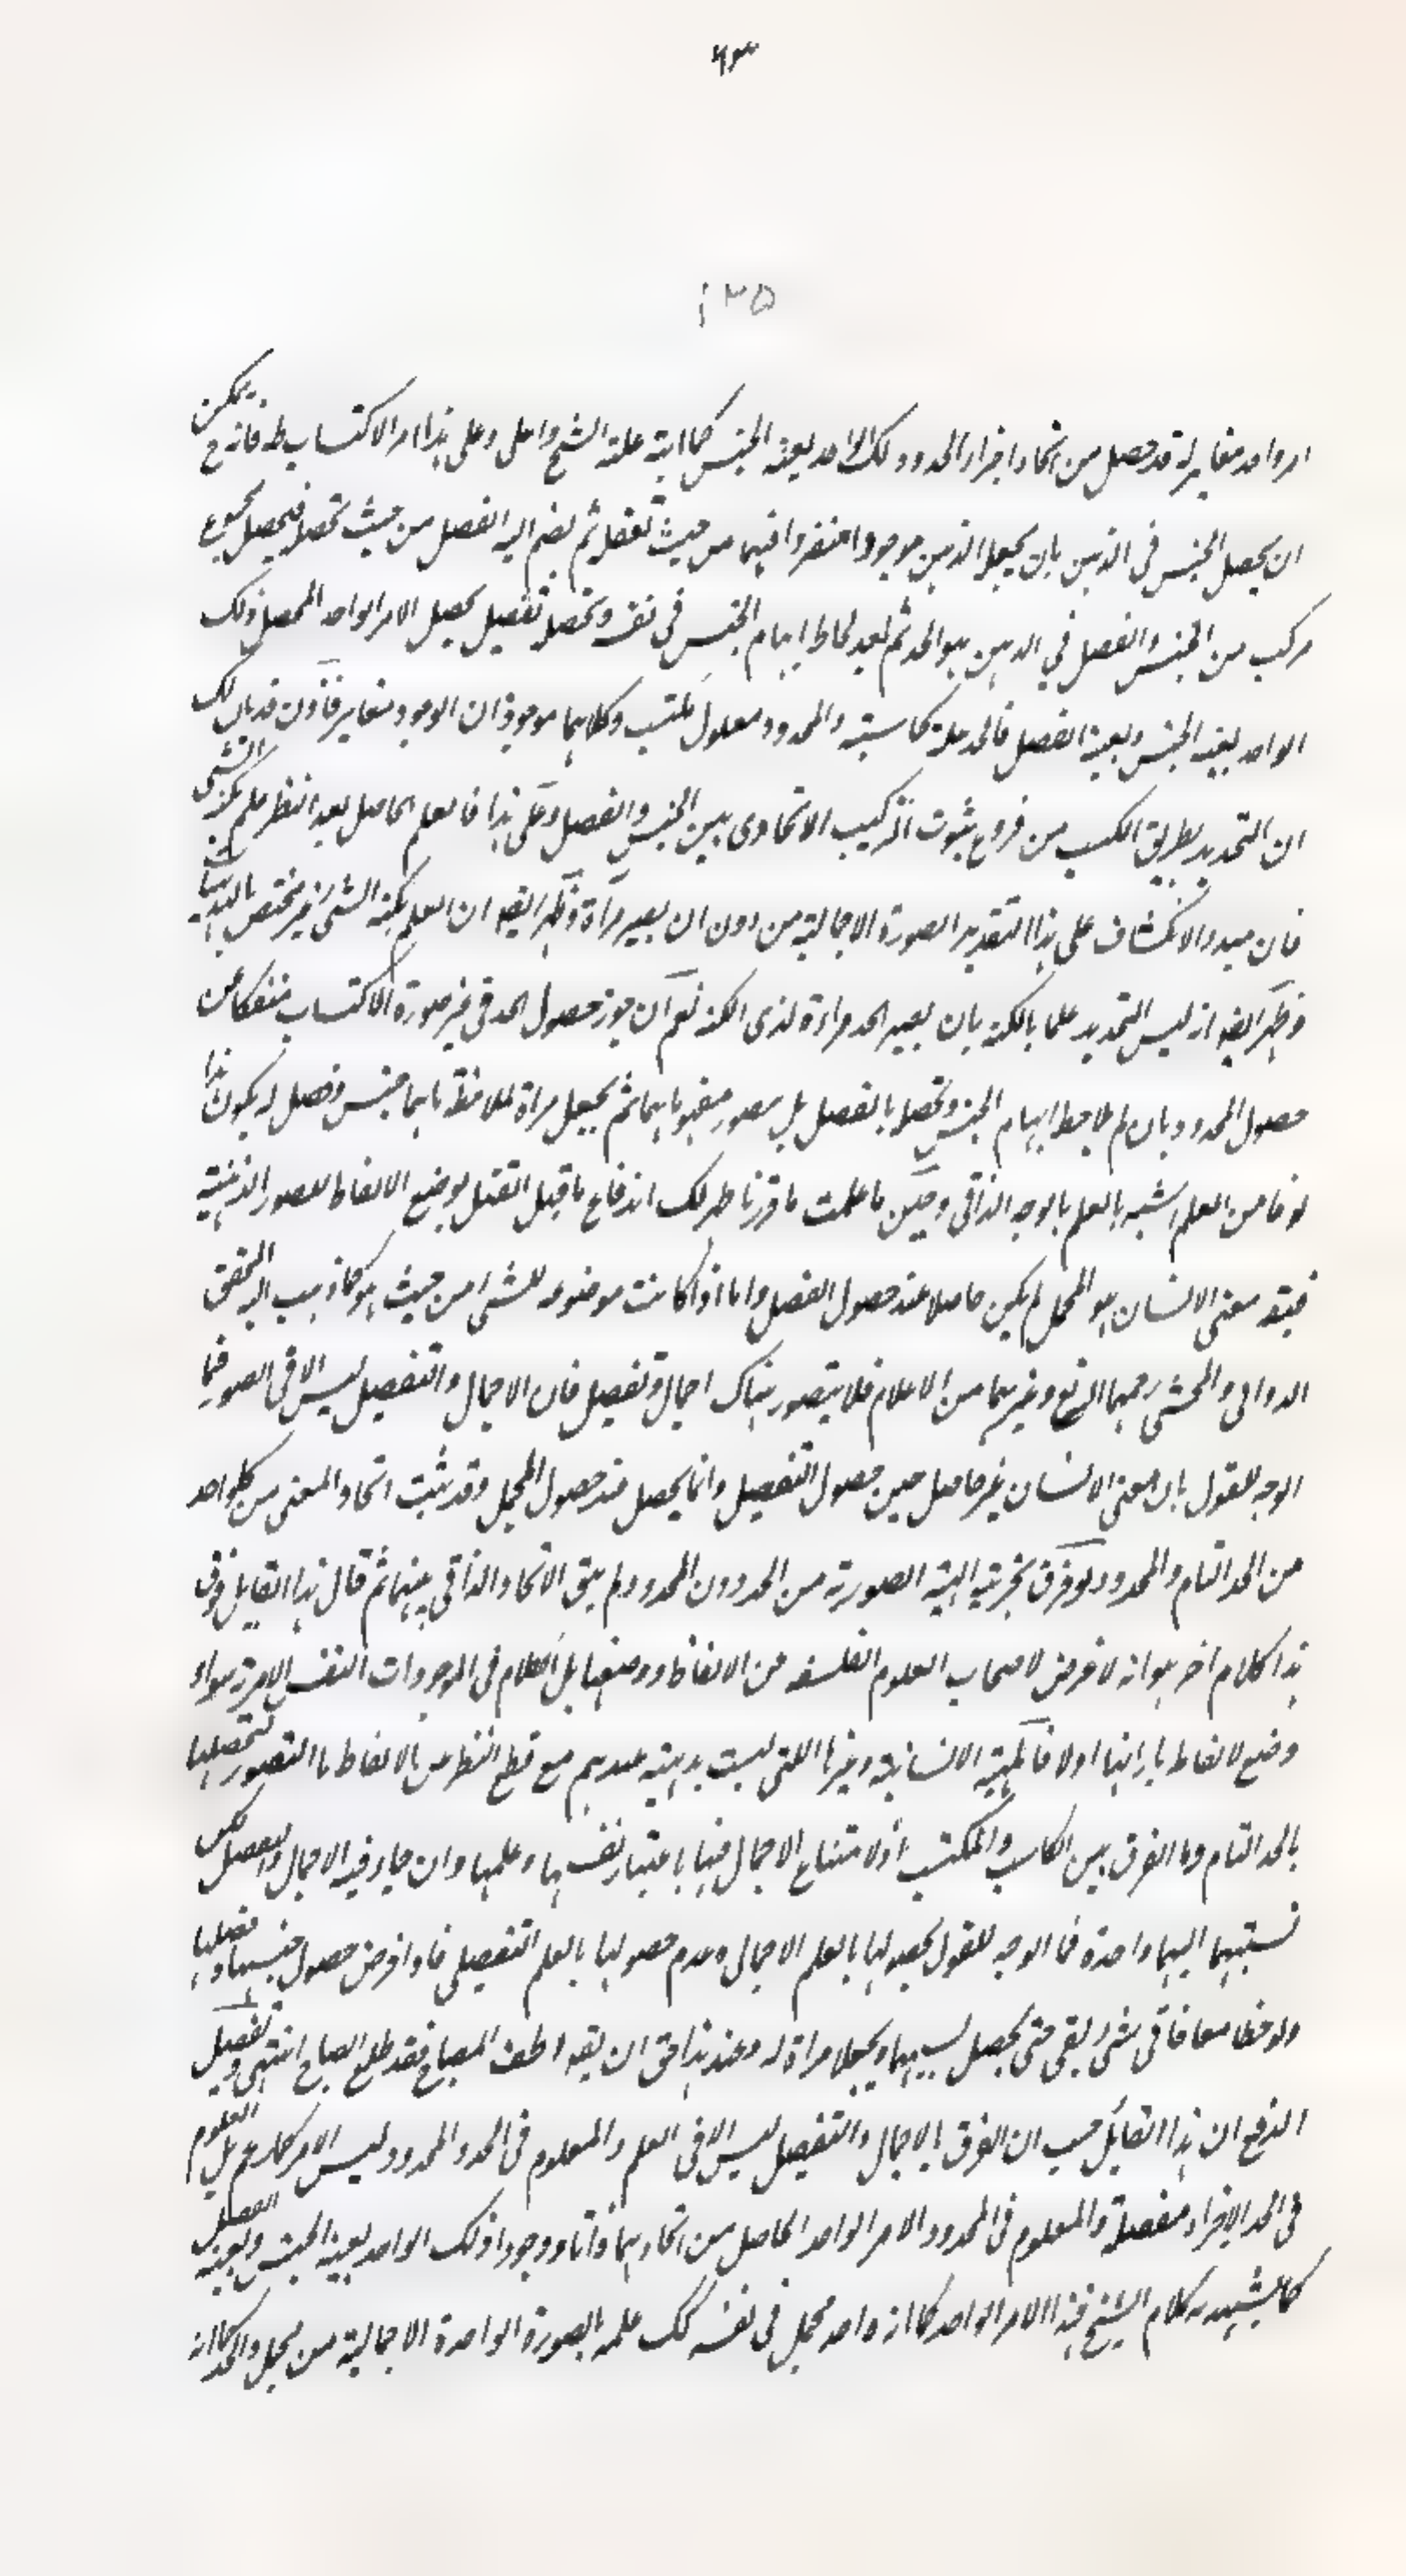 ٦٣
١٢٥
امر واحد مغاير له قد حصل من اتحاد اجزاء الحدود ذلك الواحد بعينه الجنس كما اثبته عليه الشيخ واعلى وعلى هذا امر الاكتساب ظ فانه ح يمكن
ان يحصل الجنس في الذهن بان يجعل الذهن موجودا منفردا فيهما من حيث تعقل ثم يضم اليه الفصل من حيث تحصل فيحصل مجموع
مركب من الجنس والفصل في الذهن هو الحد ثم بعد لحاظ ابهام الجنس في نفسه وتحصل تفصيل يحصل الامر الواحد المحصل ذلك
الواحد بعينه الجنس وبعينه الفصل فالحد علة كاسبته والمحدود معلول مكتسب وكلاهما موجود ان الوجود متغاير فاذن قد بان لك
ان التحديد بطريق الكسب من فروع ثبوت التركيب الاتحادي بين الجنس والفصل وعلى هذا فالعلم الحاصل بعد النظر علم بكنه الشيء
فان مبدء الانكشاف على هذا التقدير الصورة الاجمالية من دون ان يصير مرآة وظهر ايضا ان العلم بكنه الشيء غير مختص بالبديهيات
وظهر ايضا انه ليس التحديد علما بالكنه بان يصير الحد مراءة لذي الكنه نعم ان جوز حصول الحد في غير صورة الاكتساب منفكا عن
حصول المحدود بان لم يلاحظ ابهام الجنس وتحصله بالفصل بل يتصور مفهوماهما ثم يجعل مراة للملاحظة ما هما جنس وفصل له يكون هذا
نوعا من العلم اشبه بالعلم بالوجه الذاتي وحين ما علمت ما قررنا ظهر لك اندفاع ما قيل القتيل بوضع الالفاظ للصور الذهنية
فيتد معنى الانسان هو المجمل لم يكن حاصلا عند حصول المفصل واما اذا كانت موضوعة للشيء من حيث هو كما ذهب اليه المحقق
الدواني والمحشي رحمهما الله تع وغيرهما من الاعلام فلا يتصور هناك اجمال وتفصيل فان الاجمال والتفصيل ليس الا في الصور فما
الوجه للقول بان معنى الانسان غير حاصل حين حصول التفصيل وانما يحصل عند حصول المجمل وقد ثبت اتحاد المعنى من كل واحد
من الحد التام والمحدود ولو فرق بجزئية الهيئة الصورية من الحد دون المحدود لم يبق الاتحاد الذاتي بينهما ثم قال هذا القايل فوق
هذا كلام اخر هو انه لا غرض لاصحاب العلوم الفلسفه من الالفاظ ووضعها بل الكلام في الموجودات النفس الامرية سواء
وضع الالفاظ بازائها اولا فالمهية الانسانية وغيرها اللتي ليست بديهية عندهم مع قطع النظر عن الالفاظ ما التصور لتحصلها
بالحد التام وما الفرق بين الكاسب والمكتسب اذ لا متناع الاجمال فيها باعتبار نفسها وعلمها وان جاء فيه الاجمال والتفصيل لكن
نسبتهما اليهما واحدة فما الوجه للقول بحصولها بالعلم الاجمال وعدم حصولها بالعلم التفصيلي فاذا فرض حصول جنسها وفصلها
ولوحظا معا فاي شيء بقي حتى يحصل بسببهما ويجعلا مراة له وعند هذا حق ان يقه اطف المصباح فقد طلع الصباح انتهى وتفصيل
الدفع ان هذا القايل حسب ان الفرق بالاجمال والتفصيل ليس الا في العلم والمعلوم في الحد والمحدود وليس الامر كما زعم بل المعلوم
في الحد الاجزاء مفصلة والمعلوم في المحدود الامر الواحد الحاصل من اتحادهما ذاتا ووجودا ذلك الواحد بعينه الجنس وبعينه الفصل
كما يشهد به كلام الشيخ فهذا الامر الواحد كما انه واحد مجمل في نفسه كك علمه بالصورة الواحدة الاجمالية من مجمل والحد كما انه